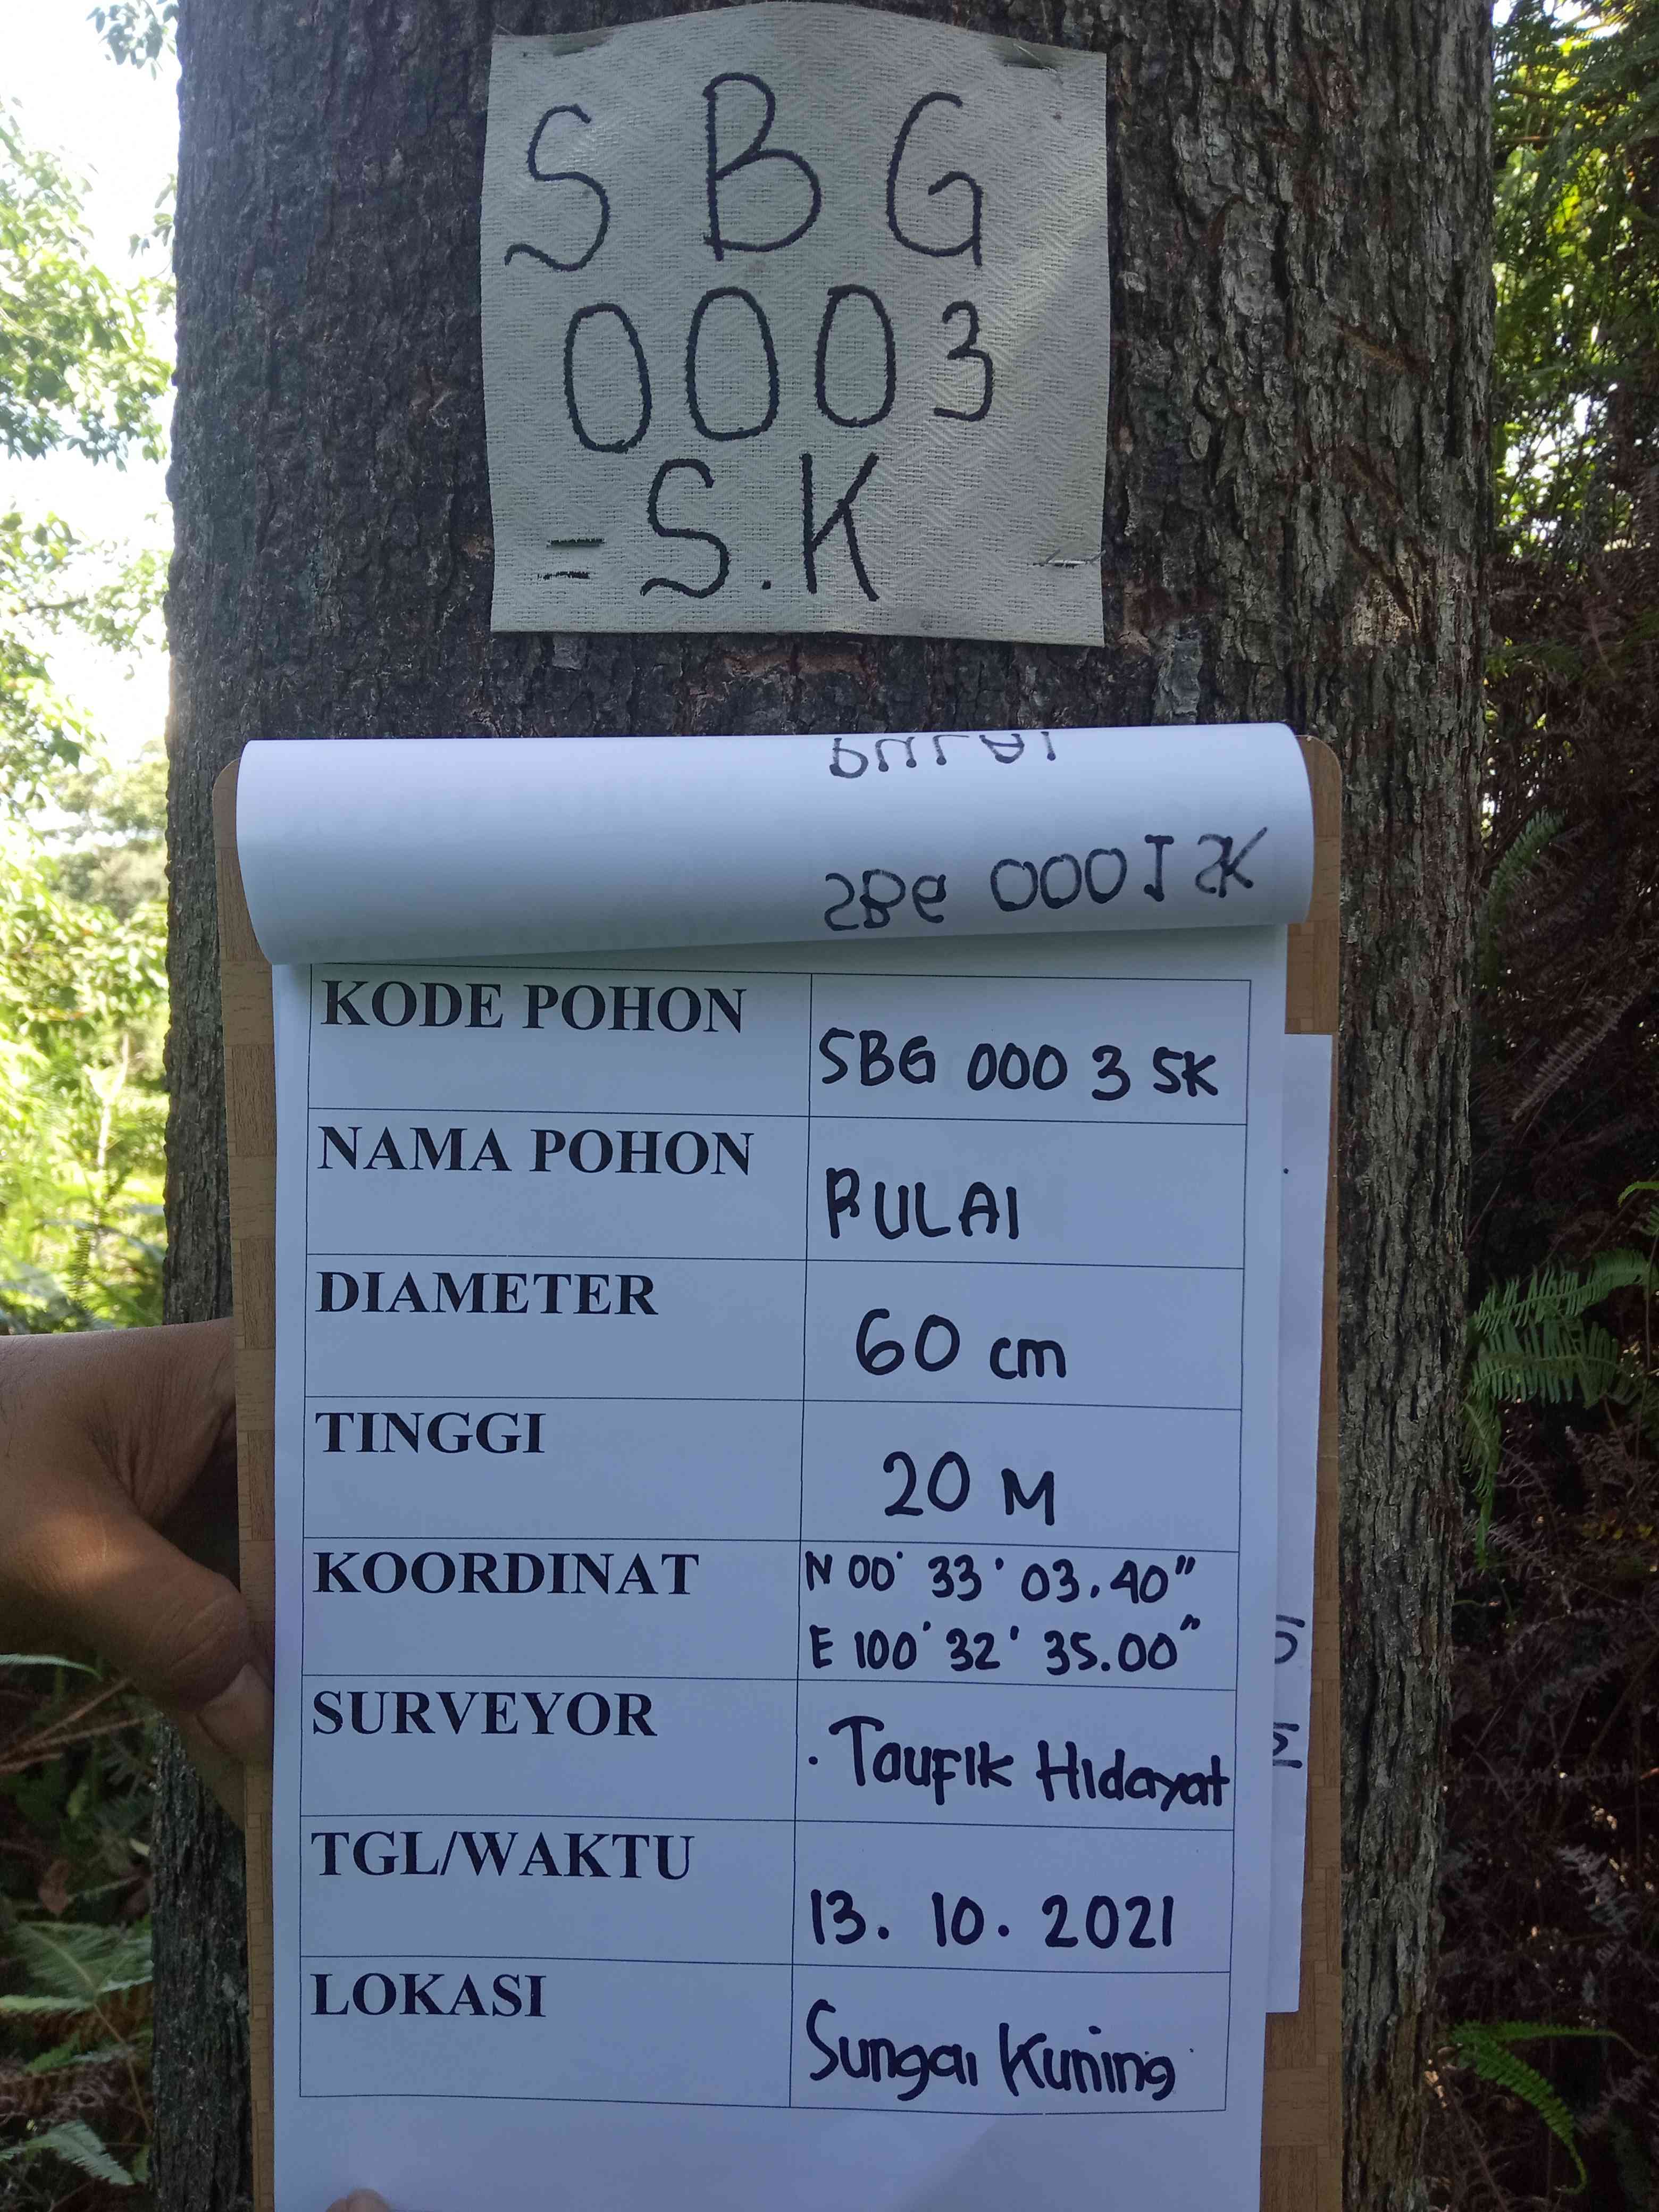 SBG
0003
= S.K
PULAI
SBG 0001 SK
KODE POHON
SBG 0003 SK
NAMA POHON
PULAI
DIAMETER
60 cm
TINGGI
20 M
KOORDINAT
N 00° 33' 03.40"
E 100° 32' 35.00"
SURVEYOR
. Taufik Hidayat
TGL/WAKTU
13. 10. 2021
LOKASI
Sungai Kuning